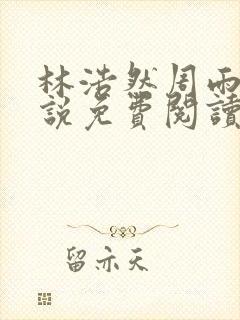 林浩然周雨
說免費閱讀
留亦天